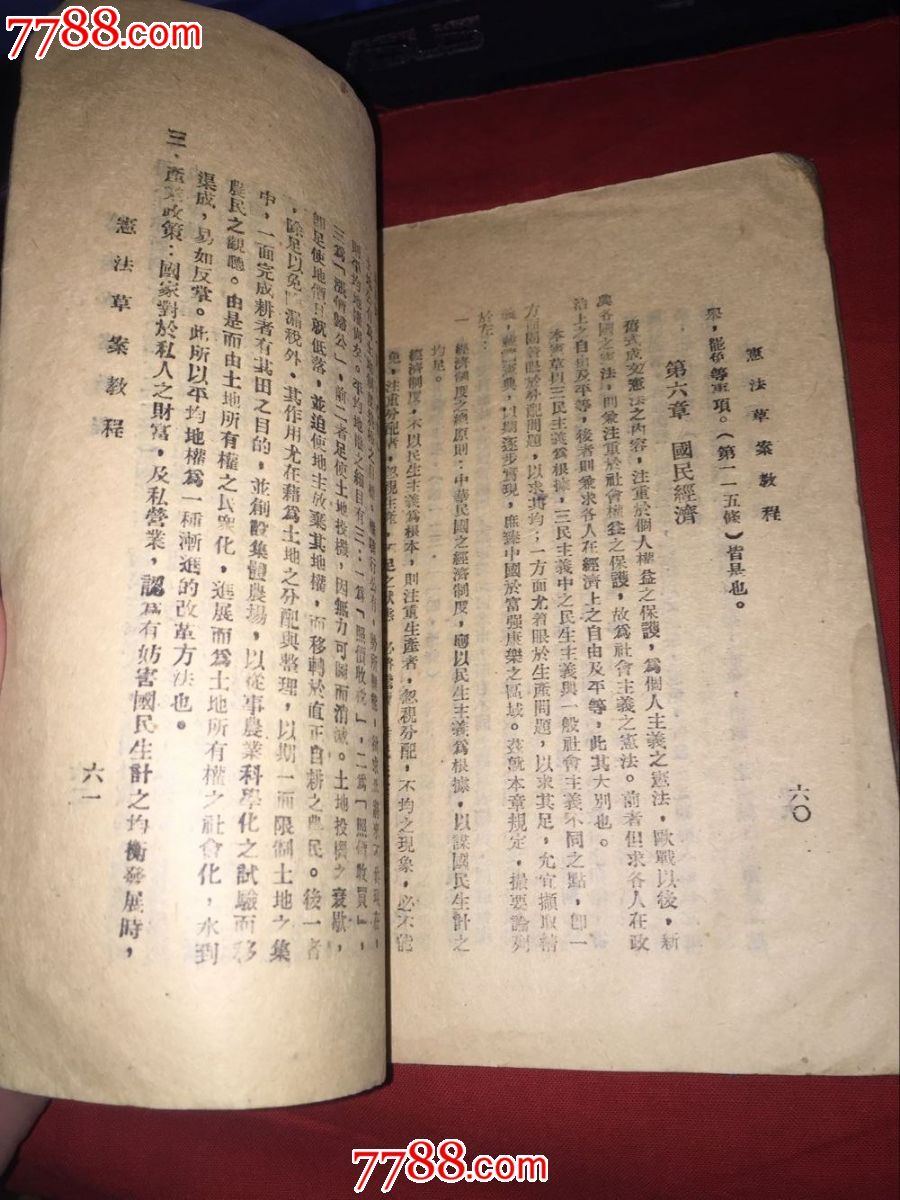 7788.com
7788.com
憲法草案教程
六〇
眾，能伊等事項。（第一一五條）皆是也。
第六章　國民經濟
舊式成文憲法之內容，注重於個人權益之保護，爲個人主義之憲法，歐戰以後，新
興各國之憲法，則兼注重於社會權益之保護，故爲社會主義之憲法。前者但求各人在政
治上之自由及平等，後者則兼求各人在經濟上之自由及平等，此其大別也。
本憲草以三民主義爲根據，三民主義中之民生主義與一般社會主義不同之點，卽一
方面固着眼於分配問題，以求其均；一方面尤着眼於生產問題，以求其足，允宜擷取精
義，憲典，以期逐步實現，庶幾中國於富強康樂之區域。茲就本章規定，撮要論列
於左：
一　經濟制度之總原則：中華民國之經濟制度，應以民生主義爲根據，以謀國民生計之
均足。
經濟制度，不以民生主義爲根本，則注重生產者，忽視分配，不均之現象，必不能
免，注重分配者，忽視生產，不足之狀態
則平均地權尚矣。平均地權之綱目有三：一爲「照價收稅」，二爲「照價收買」，
三爲「漲價歸公」，前二者足使土地投機，因無力可圖而消滅。土地投機之衰歇，
卽足使地價日就低落，並迫使地主放棄其地權，而移轉於直正自耕之農民。後一者
，除足以免漏稅外。其作用尤在藉爲土地之分配與整理，以期一面限制土地之集
中，一面完成耕者有其田之目的，並創設集體農場，以從事農業科學化之試驗而移
農民之觀聽。由是而由土地所有權之民眾化，進展而爲土地所有權之社會化，水到
渠成，易如反掌。此所以平均地權爲一種漸進的改革方法也。
三．產業政策：國家對於私人之財富，及私營業，認爲有妨害國民生計之均衡發展時，
憲法草案教程
六一
7788.com
7788.com